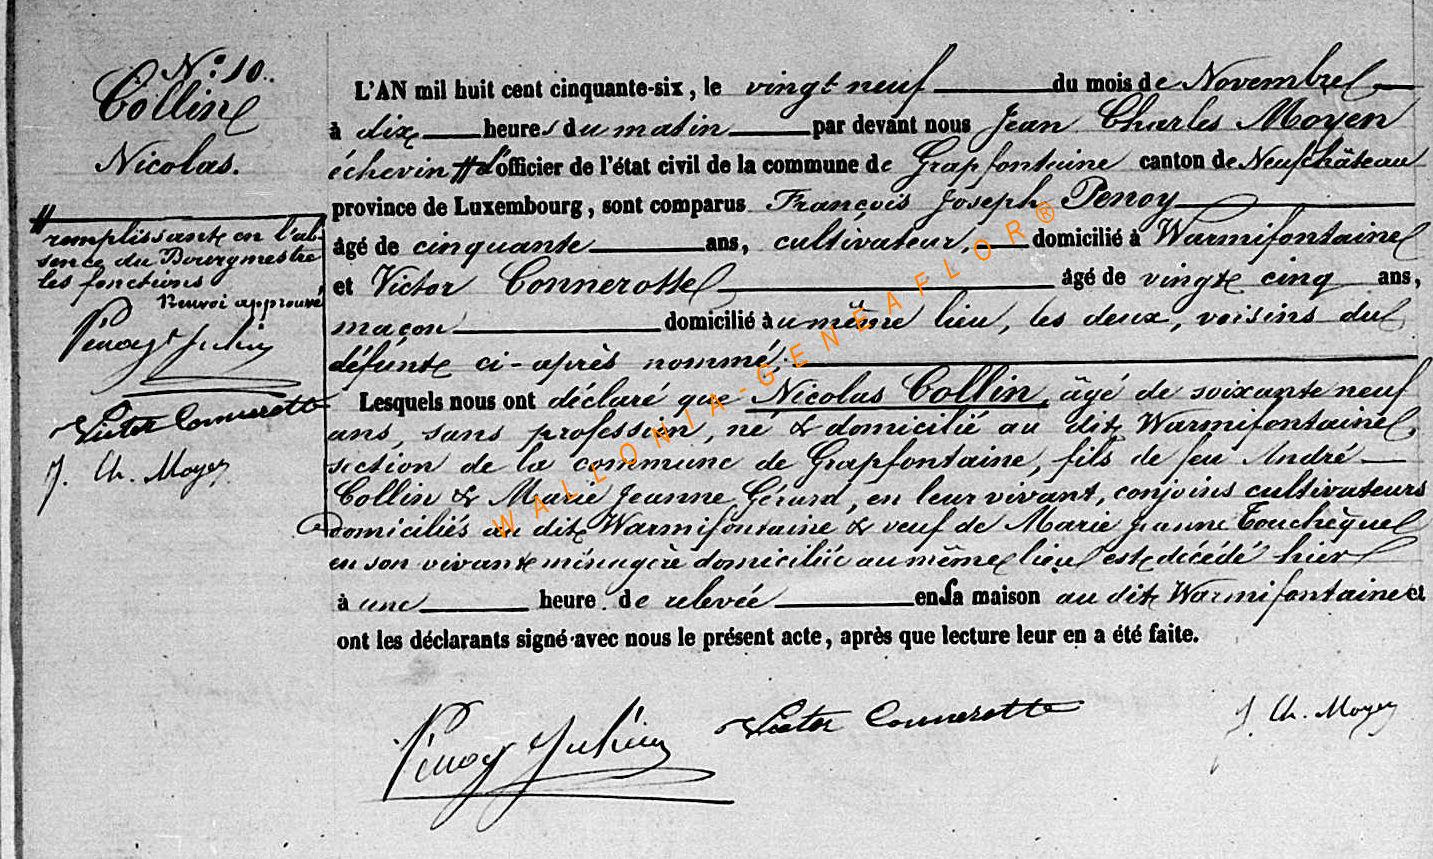 N° 10.
Collin
Nicolas.
# remplissant en l'ab-
sence du Bourgmestre
les fonctions
Renvoi approuvé
Victor Connerotte
J. Ch. Moyen
L'AN mil huit cent cinquante-six, le vingt neuf du mois de Novembre
à dix heures du matin par devant nous Jean Charles Moyen
échevin # d'officier de l'état civil de la commune de Grapfontaine canton de Neufchâteau
province de Luxembourg, sont comparus François Joseph Penoy
âgé de cinquante ans, cultivateur, domicilié à Warmifontaine
et Victor Connerotte âgé de vingt cinq ans,
maçon domicilié au même lieu, les deux, voisins du
défunt ci-après nommé;
Lesquels nous ont déclaré que Nicolas Collin, âgé de soixante neuf
ans, sans profession, né & domicilié au dit Warmifontaine,
section de la commune de Grapfontaine, fils de feu André
Collin & Marie Jeanne Gérard, en leur vivant, conjoins cultivateurs
domiciliés au dit Warmifontaine & veuf de Marie Jeanne Touchèque
en son vivant ménagère domiciliée au même lieu est décédé hier
à une heure de relevée en sa maison au dit Warmifontaine et
ont les déclarants signé avec nous le présent acte, après que lecture leur en a été faite.
Victor Connerotte
J. Ch. Moyen
WALLONIA-GENEAFLOR®